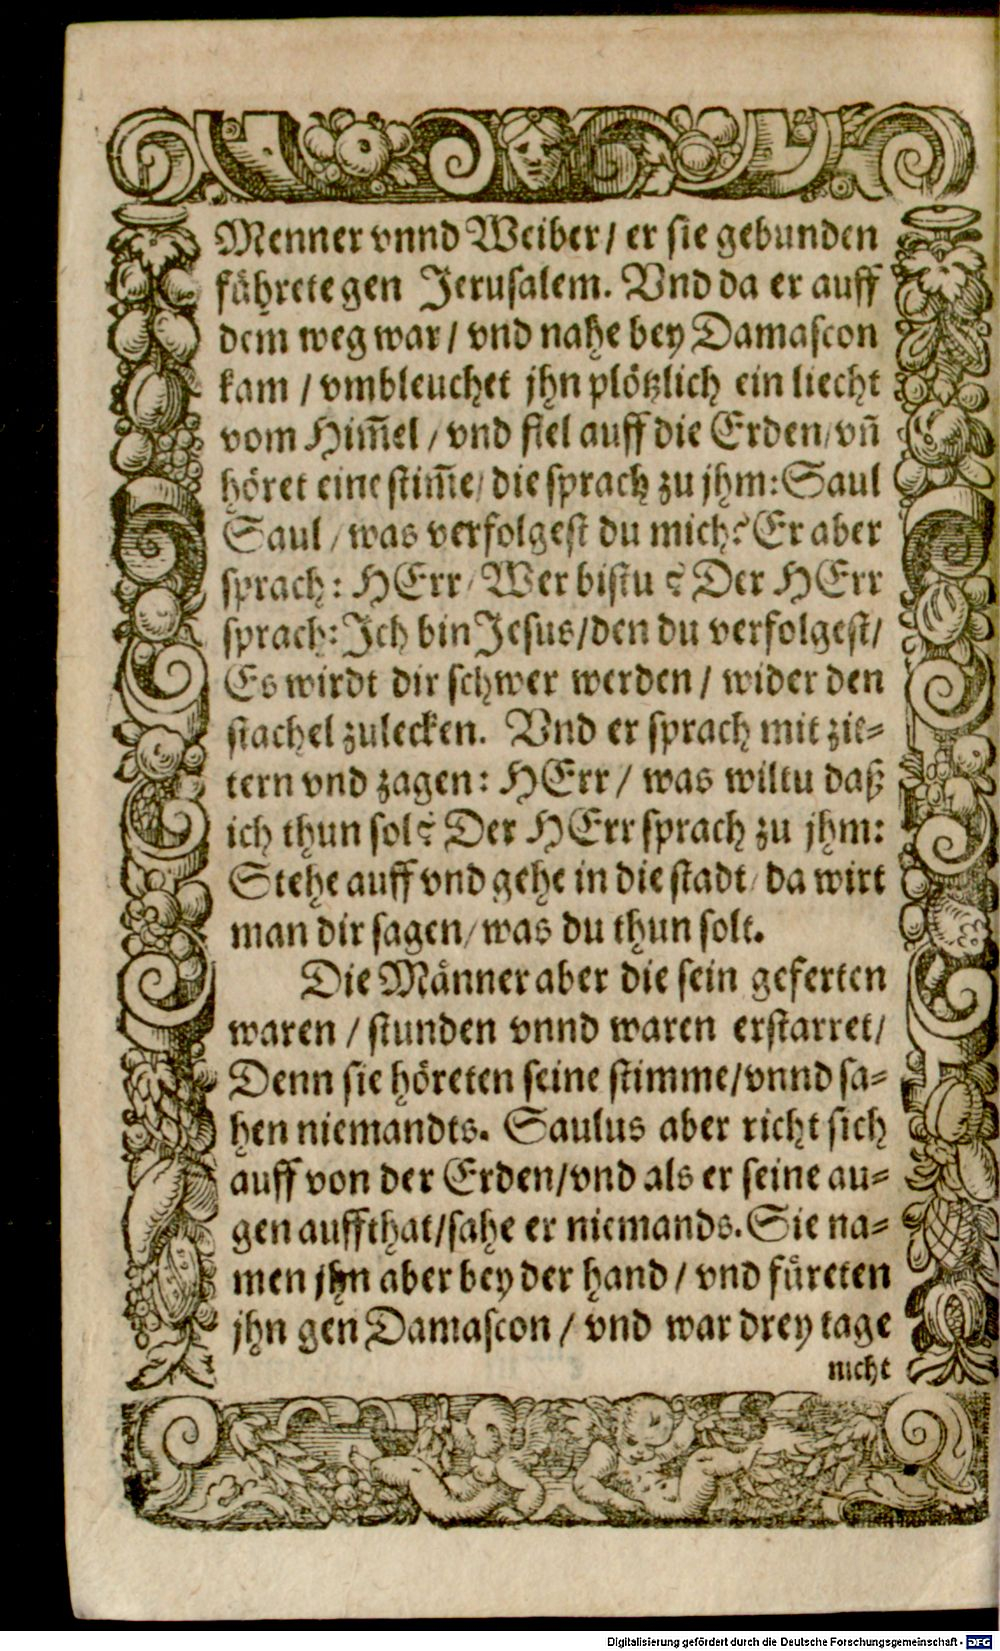 Menner vnnd Weiber / er sie gebunden
fährete gen Jerusalem. Vnd da er auff
dem weg war / vnd nahe bey Damascon
kam / vmbleuchet jhn plötzlich ein liecht
vom Him̃el / vnd fiel auff die Erden / vñ
höret eine stim̃e / die sprach zu jhm: Saul
Saul / was verfolgest du mich? Er aber
sprach: HErr / Wer bistu? Der HErr
sprach: Jch bin Jesus / den du verfolgest /
Es wirdt dir schwer werden / wider den
stachel zulecken. Vnd er sprach mit zit-
tern vnd zagen: HErr / was wiltu daß
ich thun sol? Der HErr sprach zu jhm:
Stehe auff vnd gehe in die stadt / da wirt
man dir sagen / was du thun solt.
Die Männer aber die sein geferten
waren / stunden vnnd waren erstarret /
Denn sie höreten seine stimme / vnnd sa-
hen niemandts. Saulus aber richt sich
auff von der Erden / vnd als er seine au-
gen auffthat / sahe er niemands. Sie na-
men jhn aber bey der hand / vnd füreten
jhn gen Damascon / vnd war drey tage
nicht
Digitalisierung gefördert durch die Deutsche Forschungsgemeinschaft - DFG